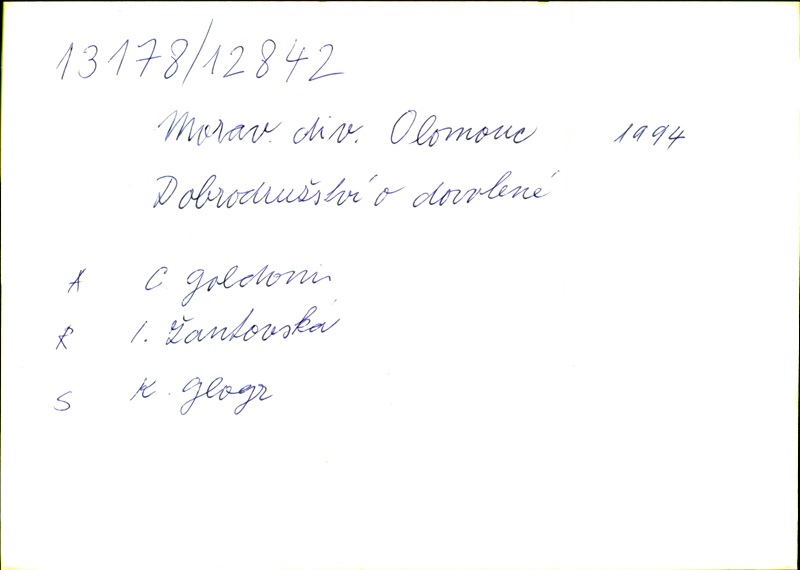 13178/12842
Morav. div. Olomouc 1994
Dobrodružství o dovolené
A C Goldoni
R I. Žantovská
S K. Glogr